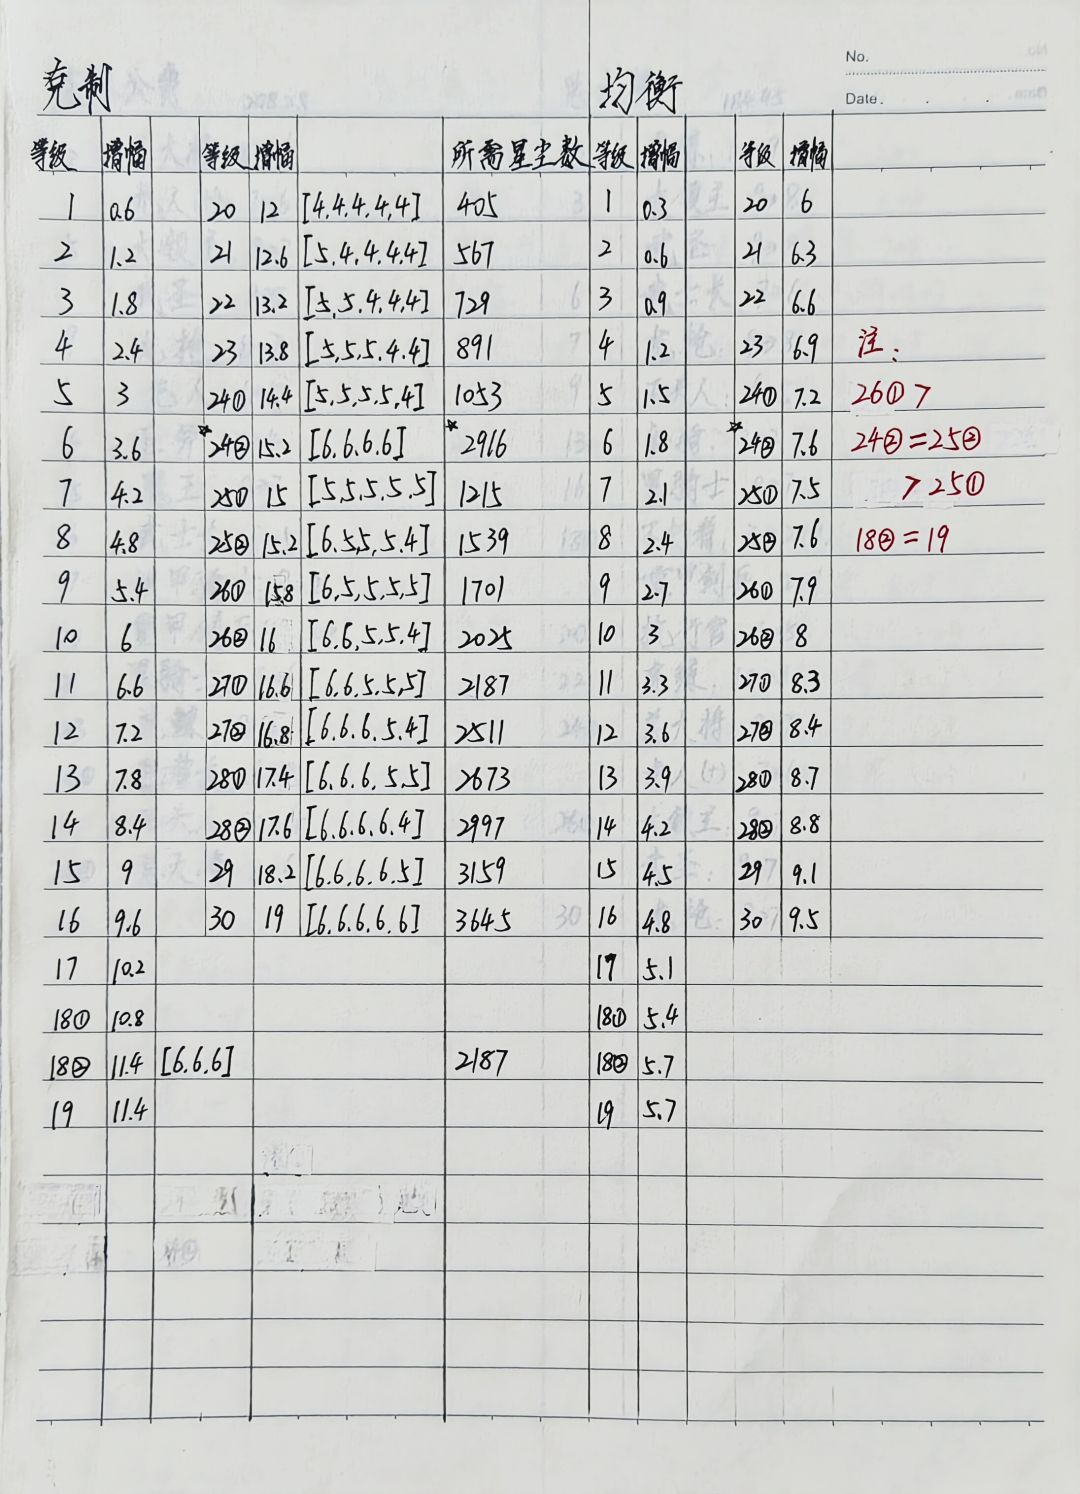 No.
克制 均衡 Date.
等级 增幅 等级 增幅 所需星尘数 等级 增幅 等级 增幅
1 0.6 20 12 [4.4.4.4,4] 405 1 0.3 20 6
2 1.2 21 12.6 [5,4.4,4.4] 567 2 0.6 21 6.3
3 1.8 22 13.2 [5,5.4,4,4] 729 3 0.9 22 6.6
4 2.4 23 13.8 [5,5,5,4.4] 891 4 1.2 23 6.9 注:
5 3 24① 14.4 [5,5,5,5,4] 1053 5 1.5 24① 7.2 26①>
6 3.6 ☆24② 15.2 [6.6.6.6] ☆2916 6 1.8 ☆24② 7.6 24②=25②
7 4.2 25① 15 [5.5,5,5,5] 1215 7 2.1 25① 7.5 >25①
8 4.8 25② 15.2 [6.5,5,5.4] 1539 8 2.4 25② 7.6 18②=19
9 5.4 26① 15.8 [6,5,5,5,5] 1701 9 2.7 26① 7.9
10 6 26② 16 [6.6,5,5.4] 2025 10 3 26② 8
11 6.6 27① 16.6 [6.6.5.5,5] 2187 11 3.3 27① 8.3
12 7.2 27② 16.8 [6.6.6.5.4] 2511 12 3.6 27② 8.4
13 7.8 28① 17.4 [6.6.6,5,5] 2673 13 3.9 28① 8.7
14 8.4 28② 17.6 [6.6.6.6.4] 2997 14 4.2 28② 8.8
15 9 29 18.2 [6.6.6.6.5] 3159 15 4.5 29 9.1
16 9.6 30 19 [6.6.6.6.6] 3645 16 4.8 30 9.5
17 10.2 17 5.1
18① 10.8 18① 5.4
18② 11.4 [6.6.6] 2187 18② 5.7
19 11.4 19 5.7